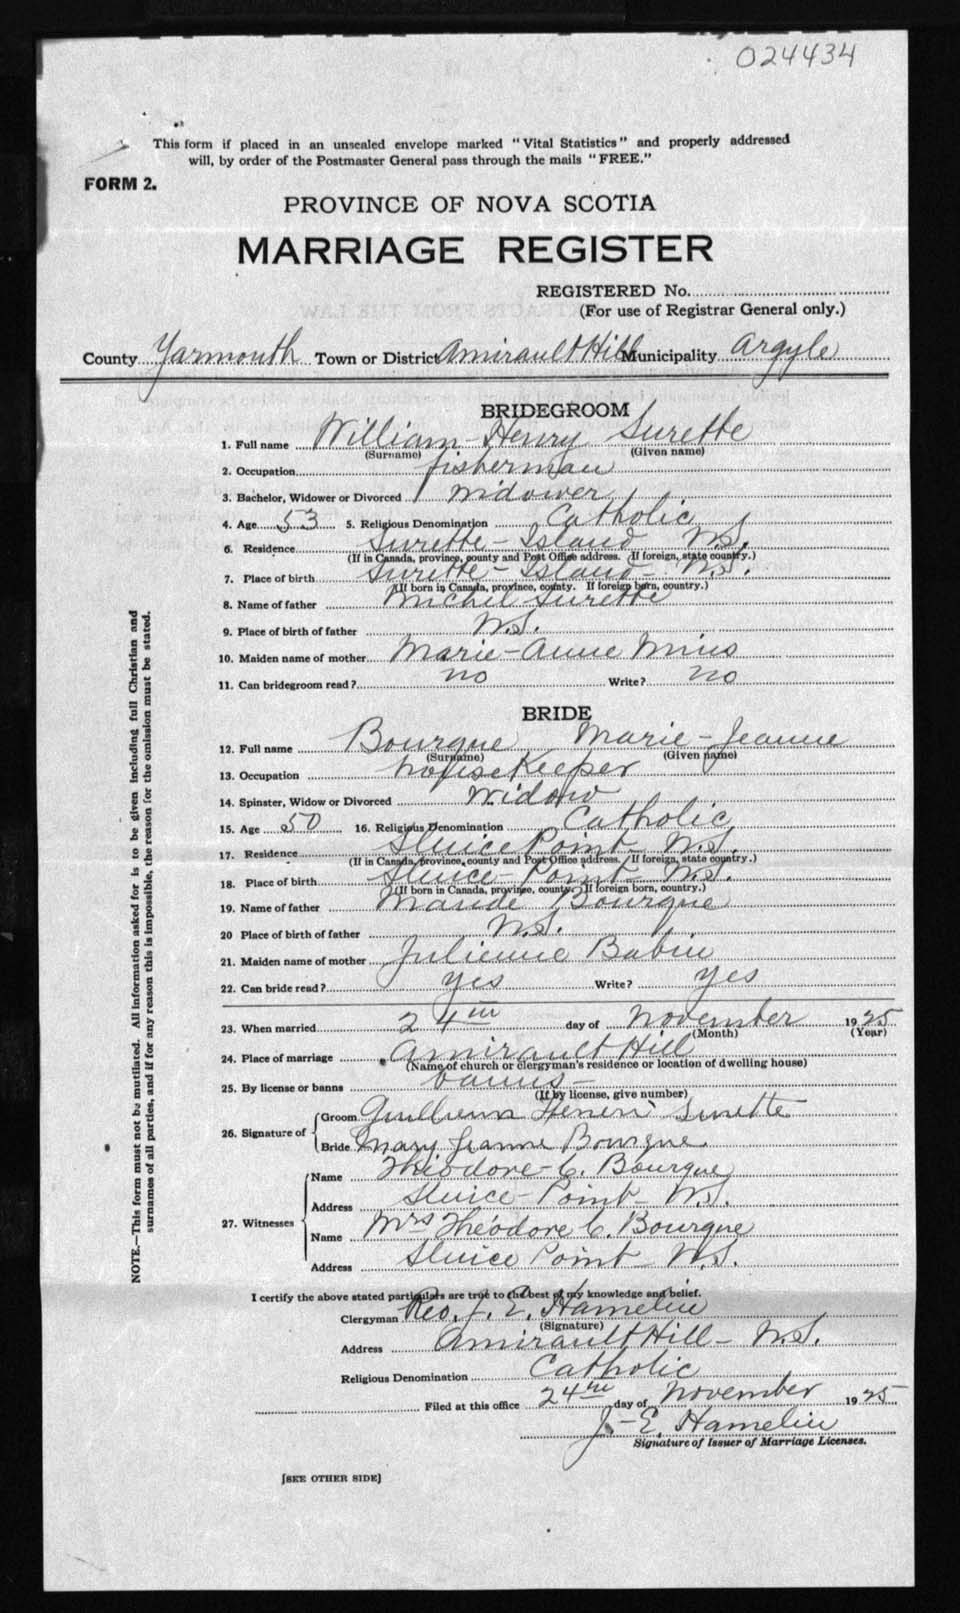 024434
This form if placed in an unsealed envelope marked "Vital Statistics" and properly addressed
will, by order of the Postmaster General pass through the mails "FREE."
FORM 2.
PROVINCE OF NOVA SCOTIA
MARRIAGE REGISTER
REGISTERED No.
(For use of Registrar General only.)
County Yarmouth Town or District Amirault Hill Municipality Argyle
BRIDEGROOM
1. Full name William-Henry Surette
(Surname) (Given name)
2. Occupation fisherman
3. Bachelor, Widower or Divorced widower
4. Age 53 5. Religious Denomination Catholic
6. Residence Surette-Island N.S.
(If in Canada, province, county and Post Office address. If foreign, state country.)
7. Place of birth Surette-Island N.S.
(If born in Canada, province, county. If foreign born, country.)
8. Name of father Michel Surette
9. Place of birth of father N.S.
10. Maiden name of mother Marie-Anne Mius
11. Can bridegroom read? no Write? no
BRIDE
12. Full name Bourque Marie-Jeanne
(Surname) (Given name)
13. Occupation house Keeper
14. Spinster, Widow or Divorced Widow
15. Age 50 16. Religious Denomination Catholic
17. Residence Sluice Point N.S.
(If in Canada, province, county and Post Office address. If foreign, state country.)
18. Place of birth Sluice-Point N.S.
(If born in Canada, province, county. If foreign born, country.)
19. Name of father Mande Bourque
20 Place of birth of father N.S.
21. Maiden name of mother Julienne Babin
22. Can bride read? yes Write? yes
23. When married 24th day of November 1925
(Month) (Year)
24. Place of marriage Amirault Hill
(Name of church or clergyman's residence or location of dwelling house)
25. By license or banns banns-
(If by license, give number)
26. Signature of Groom Guilheum Heneri Surette
Bride Mary Jeanne Bourque
27. Witnesses Name Théodore-C. Bourque
Address Sluice-Point-N.S.
Name Mrs Théodore C. Bourque
Address Sluice Point-N.S.
I certify the above stated particulars are true to the best of my knowledge and belief.
Clergyman Rev. J. E. Hamelin
(Signature)
Address Amirault Hill-N.S.
Religious Denomination Catholic
Filed at this office 24th day of November 1925
J.-E. Hamelin
Signature of Issuer of Marriage Licenses.
[SEE OTHER SIDE]
NOTE.—This form must not be mutilated. All information asked for is to be given including full Christian and
surnames of all parties, and if for any reason this is impossible, the reason for the omission must be stated.